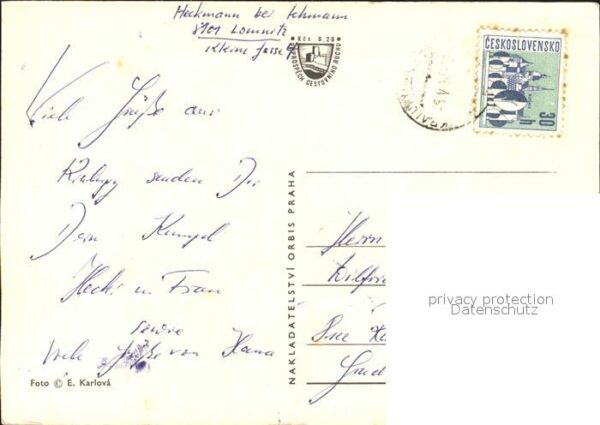 Heckmann bei Lehmann
8101 Lomnitz
Kleine Gasse 4
Kčs 0,20
VE PROSPĚCH CESTOVNÍHO RUCHU
ČESKOSLOVENSKO
30 h
Viele Grüße aus
Kralupy senden Dir
Dein Kumpel
Hecki u. Frau
sowie
Viele Grüße von Hana
Foto © E. Karlová
NAKLADATELSTVÍ ORBIS PRAHA
Herrn
Wilfrie
privacy protection
Datenschutz